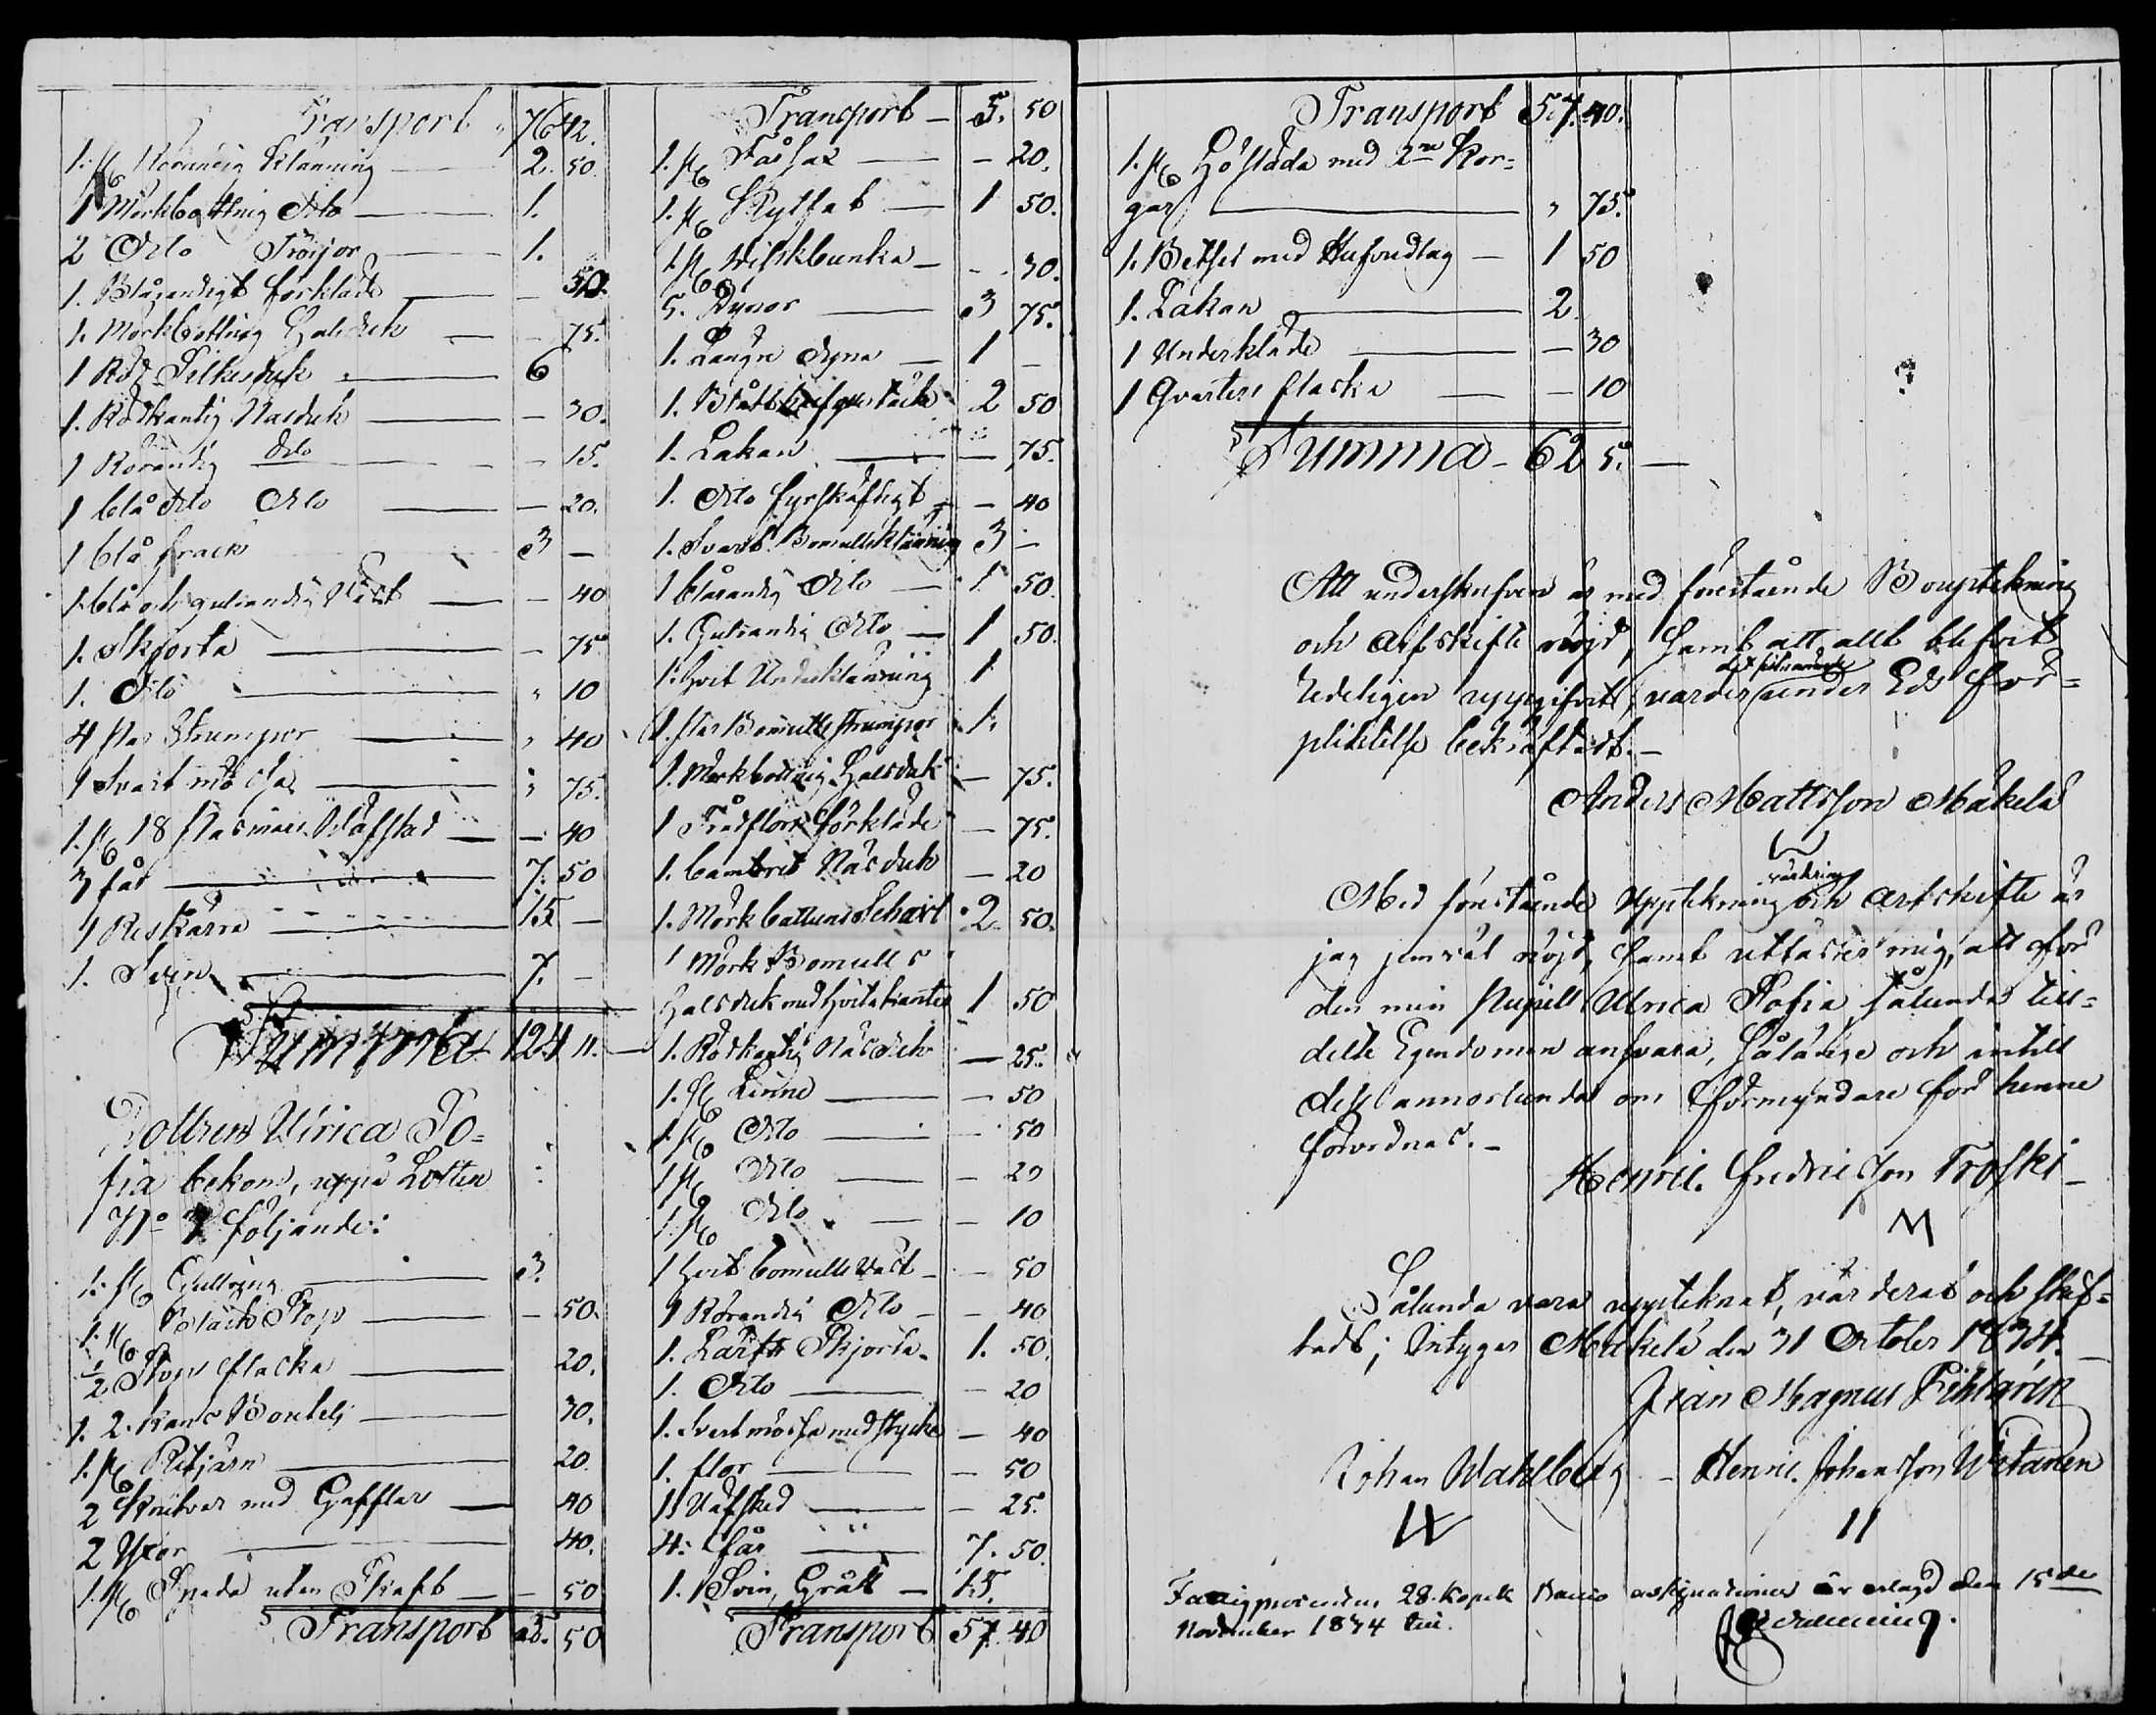 Transport 76 42.
1. st Rörandig Klänning 2. 50.
1 Mörkbottnig Dito 1.
2 Dito Tröijor 1.
1. Blårandigt förkläde - 50.
1. Mörkbottnig Halsduk - 75.
1 Röd Silkesduk 6
1. Rödkantig Näsduk - 30.
1 Rörandig Dito - 15.
1 blå Dito Dito - 20.
1 blå frack 3 -
1. blå och gulrandig Väst - 40
1. Skjorta - 75.
1. Dito " 10
4 Par Strumpor " 40
1 Svart mössa " 75.
1. st 18 Väfsked - 40
3 får 7. 50
1 Reskärra 15 -
1. Svin 7. -
Summa 124 11. -
Dottren Ulrica So=
fia bekom, uppå Lotten
No 3 följande:
1. st Gullring 3.
1. st Bläck Stop - 50.
1/2 Stops flacka 20.
1. 2. kans Boutelj 30.
1. st Ritjärn 20.
2 Knifvar med Gafflar 40
2 Yxor 40.
1. st Spada utan Skaft - 50
Transport 5. 50
Transport - 5. 50
1. st Fåsax - 20.
1. st Ryttat 1 50.
1. st Mjölkbunka - 30.
5. Dynor 3 75.
1. Långe dyna 1 -
1. Blått täcke 2 50
1. Lakan - 75.
1. Dito fyrskäftigt - 40
1. Svart Bomullsklänning 3 -
1 blårandig Dito 1 50.
1. Gulrandig Dito 1 50.
1. Hvit Underklänning 1
1. Par Bomulls strumpor 1.
1. Mörkbottnig Halsduk - 75.
1 Trådflors förkläde - 75.
1. Cambrits Näsduk - 20
1. Mörk Cattuns Schavl 2 50.
1 Mörk Bomulls
Halsduk med Hvita kanter 1 50
1. Rödkantig Näsduk - 25.
1. st Linne - 50
1. st Dito - 50
1 st Dito - 20
1. st Dito - 10
1 Hvit bomulls Väst - 50
1 Rörandig Dito - 40
1. Lärfts Skjorta 1. 50.
1. Dito - 20
1. Svart mössa med stycke - 40
1. flor - 50
1 Väfsked - 25.
4. får 7. 50.
1. Svin, Grått 15.
Transport 57. 40
Transport 57. 40.
1. st Hölada med 2ne Kor=
gar " 75.
1. Betsel med Hufvudlag 1 50
1. Lakan 2
1 Underkläde - 30
1 Qvarters flacka - 10
Summa - 62 5. -
Att underskrifven är med förestående Bouptekning
och arfskifte nöjd, samt att allt blifvit
redeligen uppgifvit, varder det fordrande under Eds för=
pliktelse bekräftadt. -
Anders Mattsson Mäkelä
Med förestående Upptekning värdering och Arfskifte är
jag jemväl nöjd, samt utfäster mig, att för
den min Pupill Ulrica Sofia sålunda till=
delte Egendomen ansvara, sålänge och intill
dess annorlunda om förmyndare för henne
förordnas. -
Henric Fredricsson Troski -
Sålunda vara upptecknat, värderat och skif=
tadt; Intygar Mäkelä den 31 October 1834. -
Johan Magnus
Johan Wahlberg - Henric Johansson Witanen
11
Fattigprocenten 28. kopek Banco assignationer är erlagd den 15de
November 1834